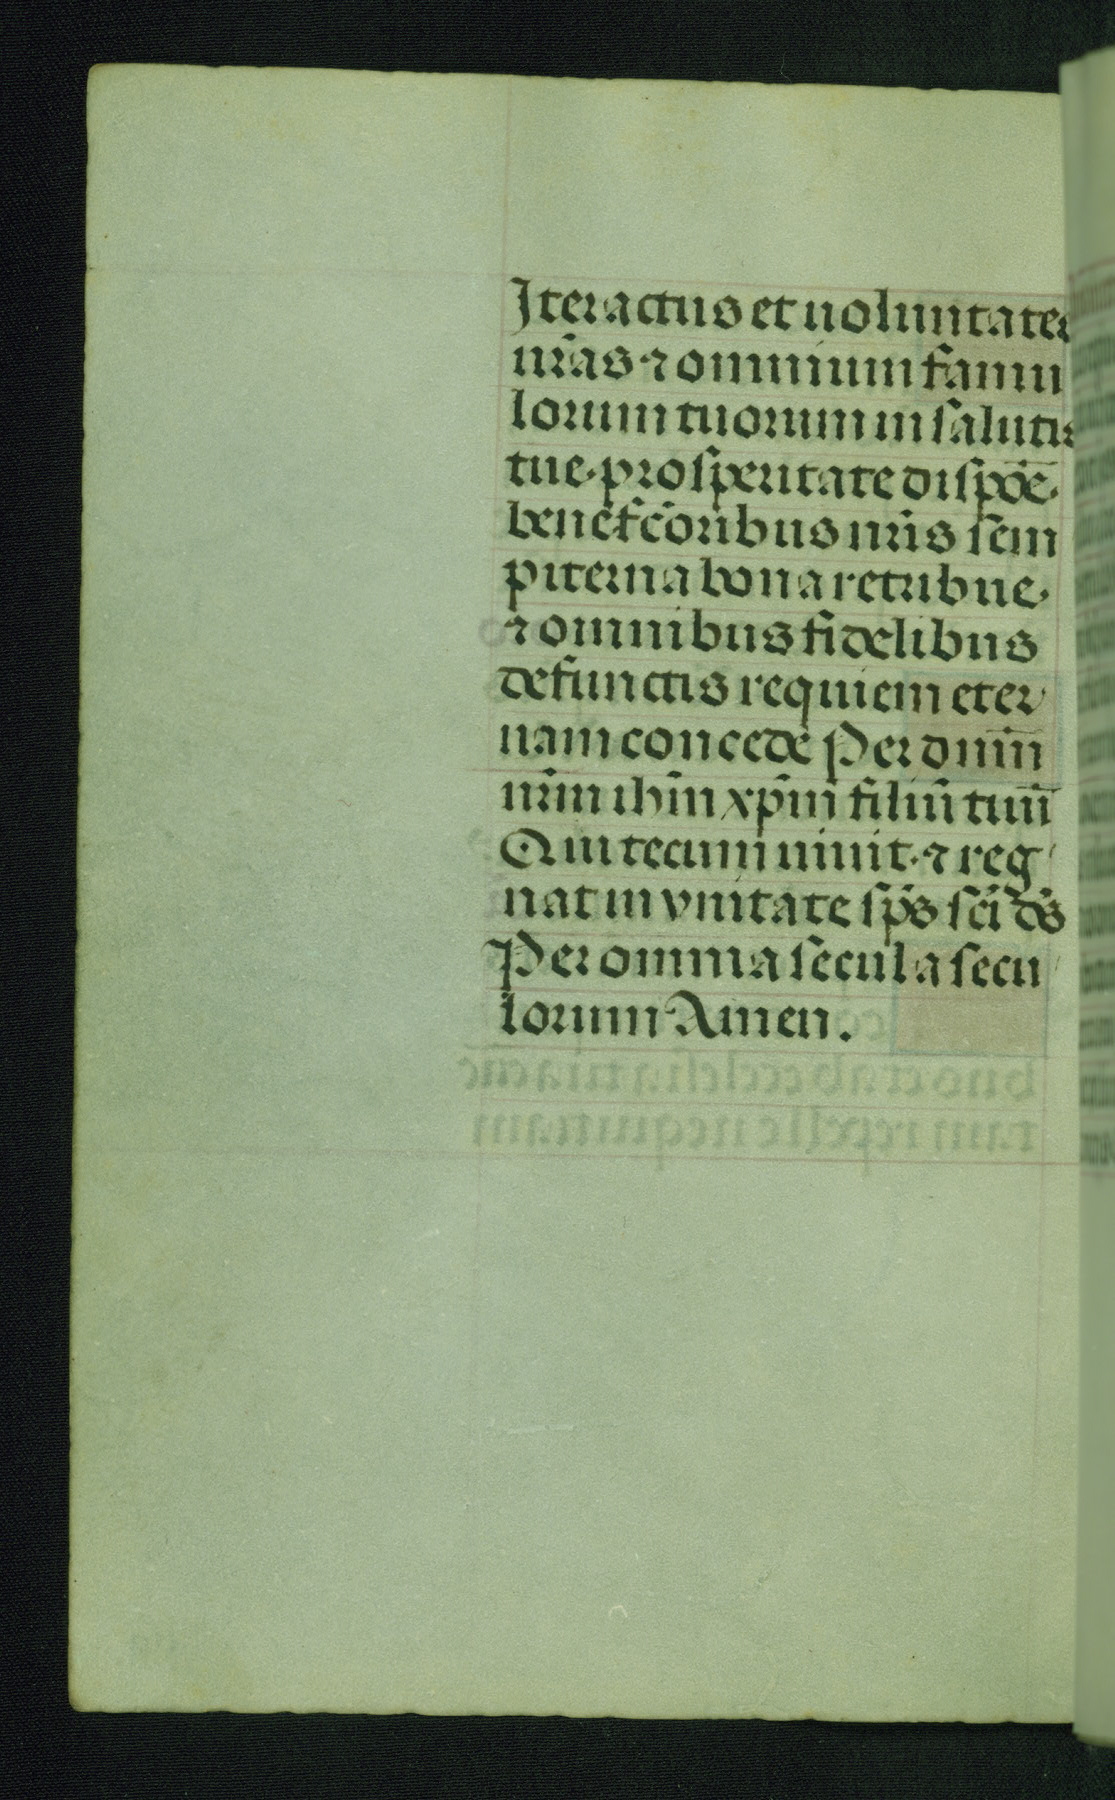 Iter actus et uoluntates
nr̃as ⁊ omnium famu
lorum tuorum in salutis
tue· prosperitate dispõe·
benef̃cõribus nr̃is sem
piterna bona retribue·
⁊ omnibus fidelibus
defunctis requiem eter
nam concede Per dnm̄
nr̃m ihm̃ xp̃m filiũ tuũ
Qui tecum uiuit· ⁊ reg
nat in vnitate sp̃s sc̃i ds̃
Per omnia secula secu
lorum Amen.